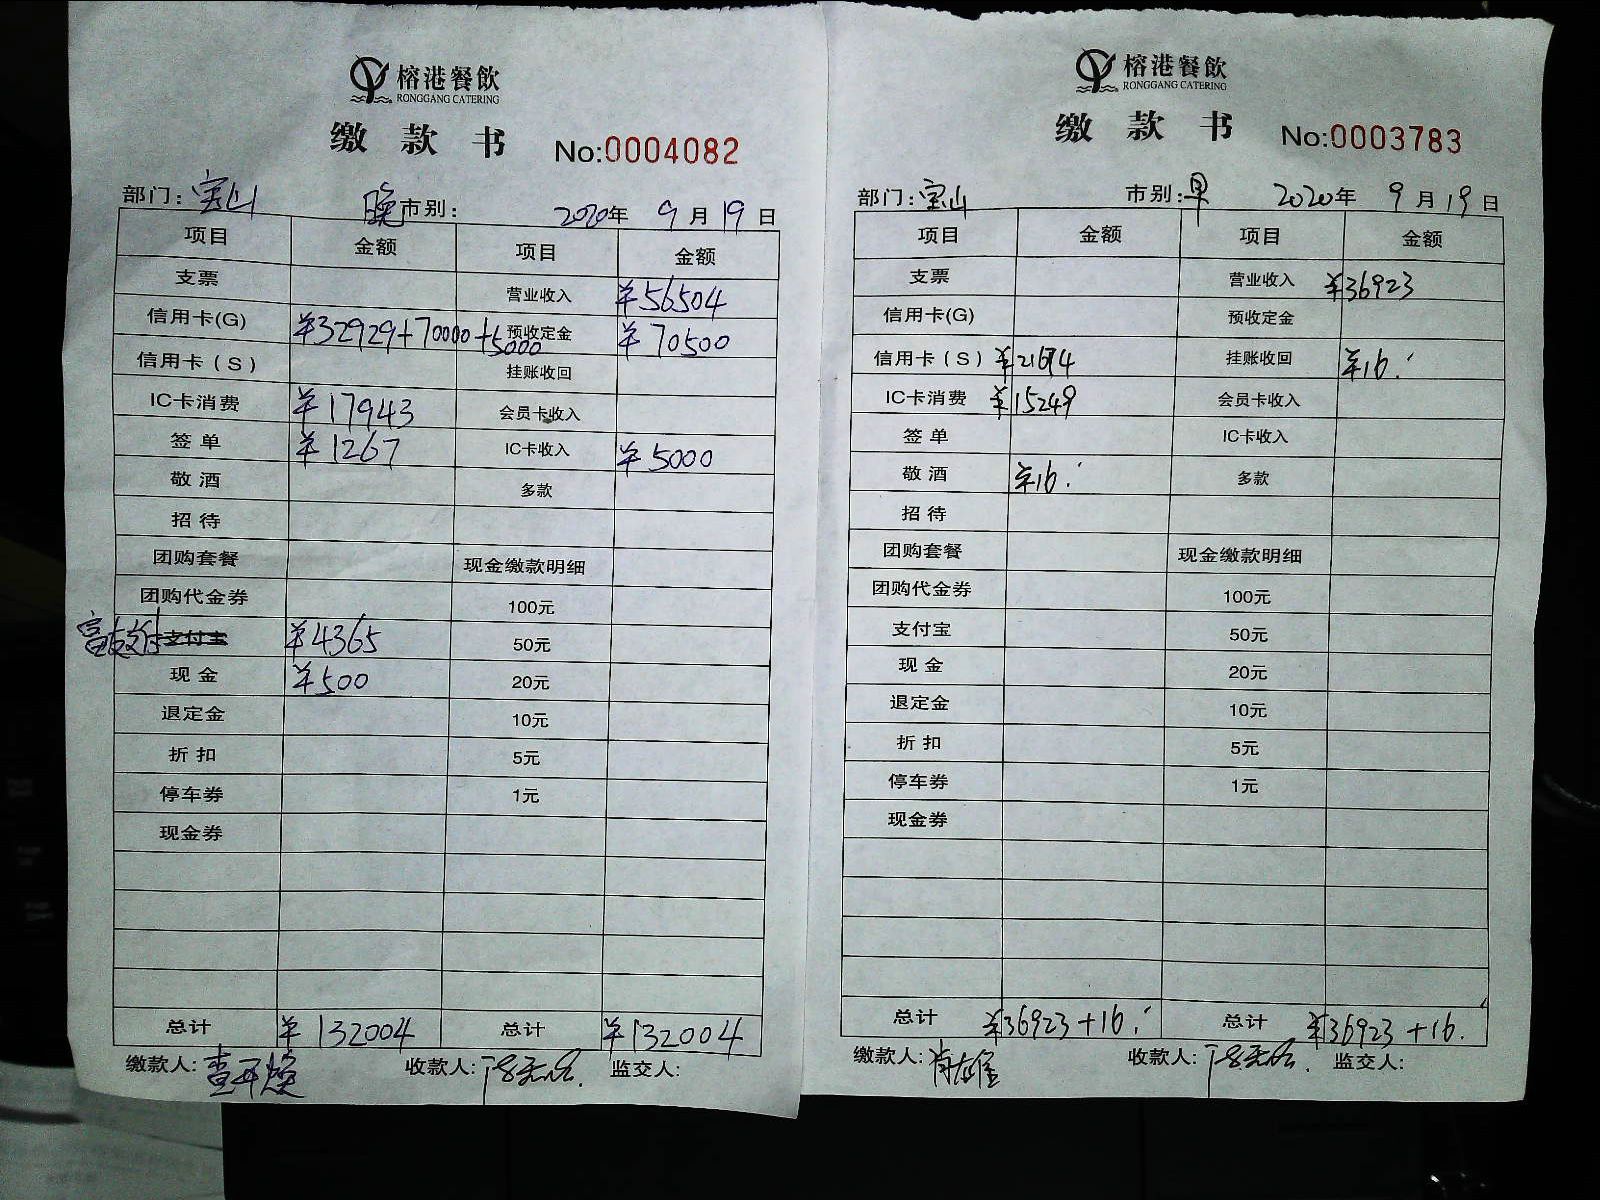 榕港餐飲
RONGGANG CATERING
缴款书 No:0004082
部门：宝山 晚市别： 2020年 9月19日
项目 金额 项目 金额
支票 营业收入 ¥56504
信用卡(G) ¥32929+70000+5000 预收定金 ¥70500
信用卡（S） 挂账收回
IC卡消费 ¥17943 会员卡收入
签单 ¥1267 IC卡收入 ¥5000
敬酒 多款
招待
团购套餐 现金缴款明细
团购代金券 100元
富友支付 支付宝 ¥4365 50元
现金 ¥500 20元
退定金 10元
折扣 5元
停车券 1元
现金券
总计 ¥132004 总计 ¥132004
缴款人: 收款人: 监交人:
榕港餐飲
RONGGANG CATERING
缴款书 No:0003783
部门：宝山 市别：早 2020年 9月19日
项目 金额 项目 金额
支票 营业收入 ¥36923
信用卡(G) 预收定金
信用卡（S） ¥21674 挂账收回 ¥16.
IC卡消费 ¥15249 会员卡收入
签单 IC卡收入
敬酒 ¥16. 多款
招待
团购套餐 现金缴款明细
团购代金券 100元
支付宝 50元
现金 20元
退定金 10元
折扣 5元
停车券 1元
现金券
总计 ¥36923+16. 总计 ¥36923+16.
缴款人: 收款人: 监交人: